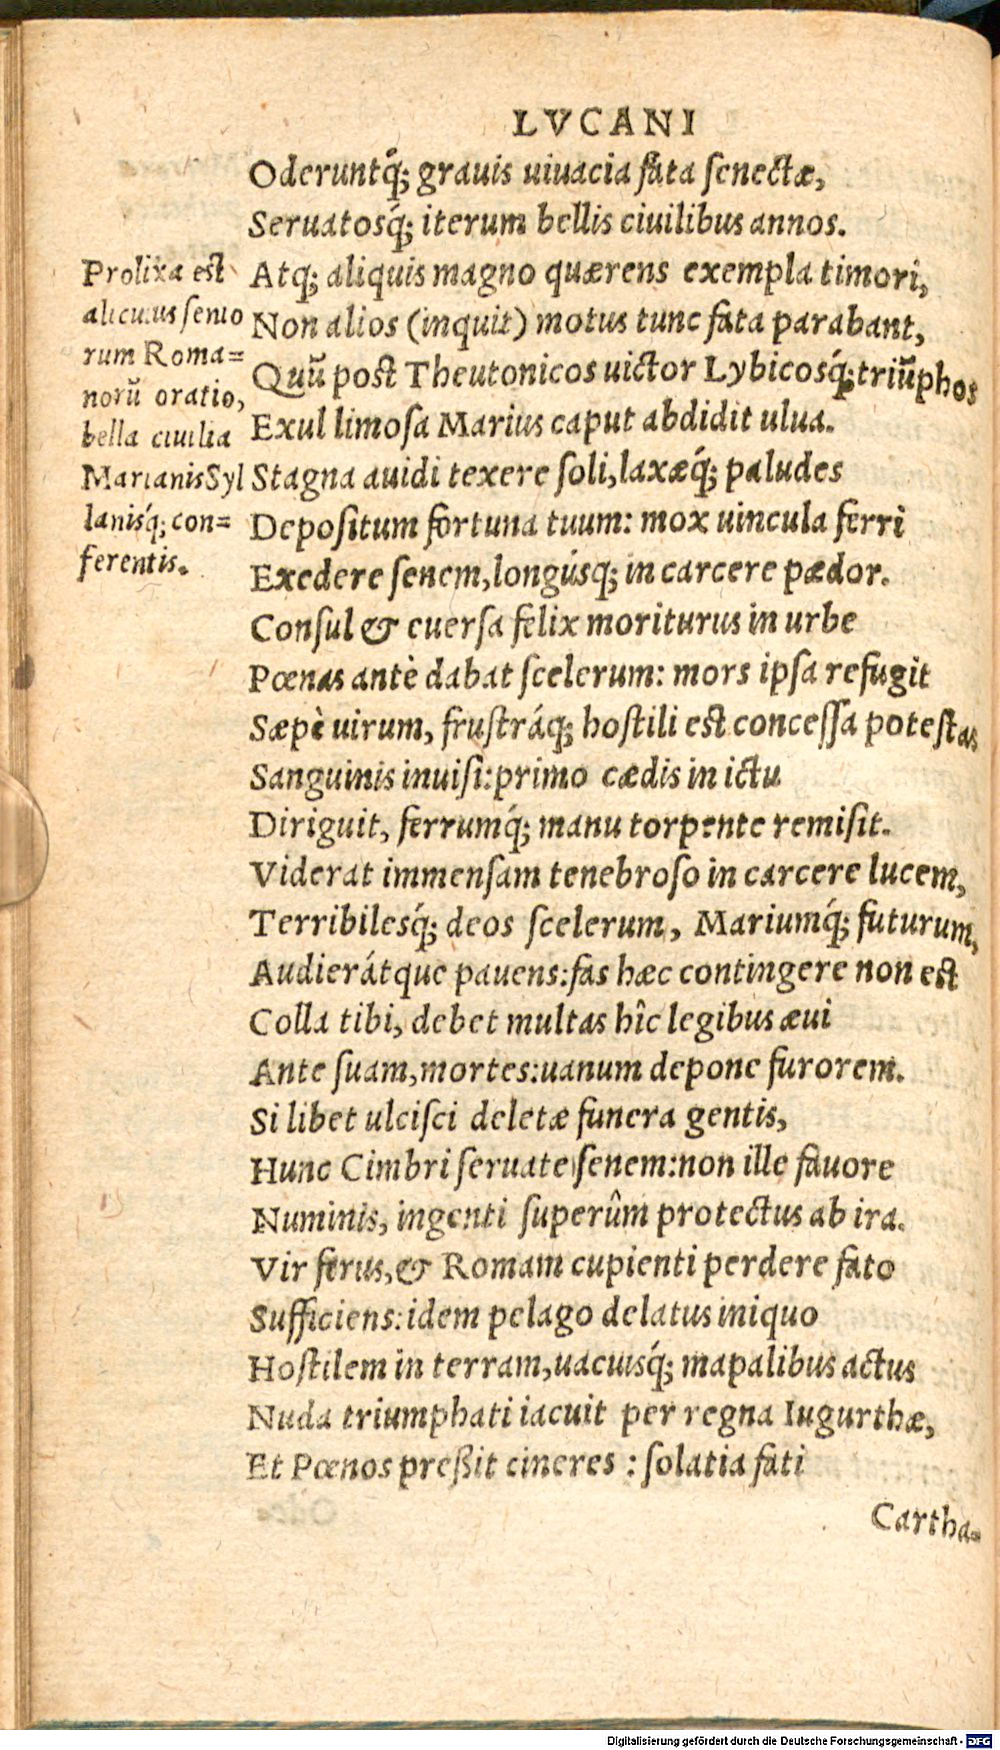 LVCANI
Oderuntq́; grauis uiuacia fata senectæ,
Seruatosq́; iterum bellis ciuilibus annos.
Atq; aliquis magno quærens exempla timori,
Non alios (inquit) motus tunc fata parabant,
Quũ post Theutonicos uictor Lybicosq́; triũphos
Exul limosa Marius caput abdidit ulua.
Stagna auidi texere soli, laxæq́; paludes
Depositum fortuna tuum: mox uincula ferri
Exedere senem, longúsq; in carcere pædor.
Consul & euersa felix moriturus in urbe
Pœnas antè dabat scelerum: mors ipsa refugit
Sæpè uirum, frustráq; hostili est concessa potestas
Sanguinis inuisi: primo cædis in ictu
Diriguit, ferrumq́; manu torpente remisit.
Viderat immensam tenebroso in carcere lucem,
Terribilesq́; deos scelerum, Mariumq́; futurum,
Audierátque pauens: fas hæc contingere non est
Colla tibi, debet multas hîc legibus æui
Ante suam, mortes: uanum depone furorem.
Si libet ulcisci deletæ funera gentis,
Hunc Cimbri seruate senem: non ille fauore
Numinis, ingenti superûm protectus ab ira.
Vir ferus, & Romam cupienti perdere fato
Sufficiens: idem pelago delatus iniquo
Hostilem in terram, uacuisq́; mapalibus actus
Nuda triumphati iacuit per regna Iugurthæ,
Et Pœnos preßit cineres: solatia fati
Cartha=
Prolixa est
alicuius senio
rum Roma=
norũ oratio,
bella ciuilia
Marianis Syl
lanisq́; con=
ferentis.
Digitalisierung gefördert durch die Deutsche Forschungsgemeinschaft - DFG